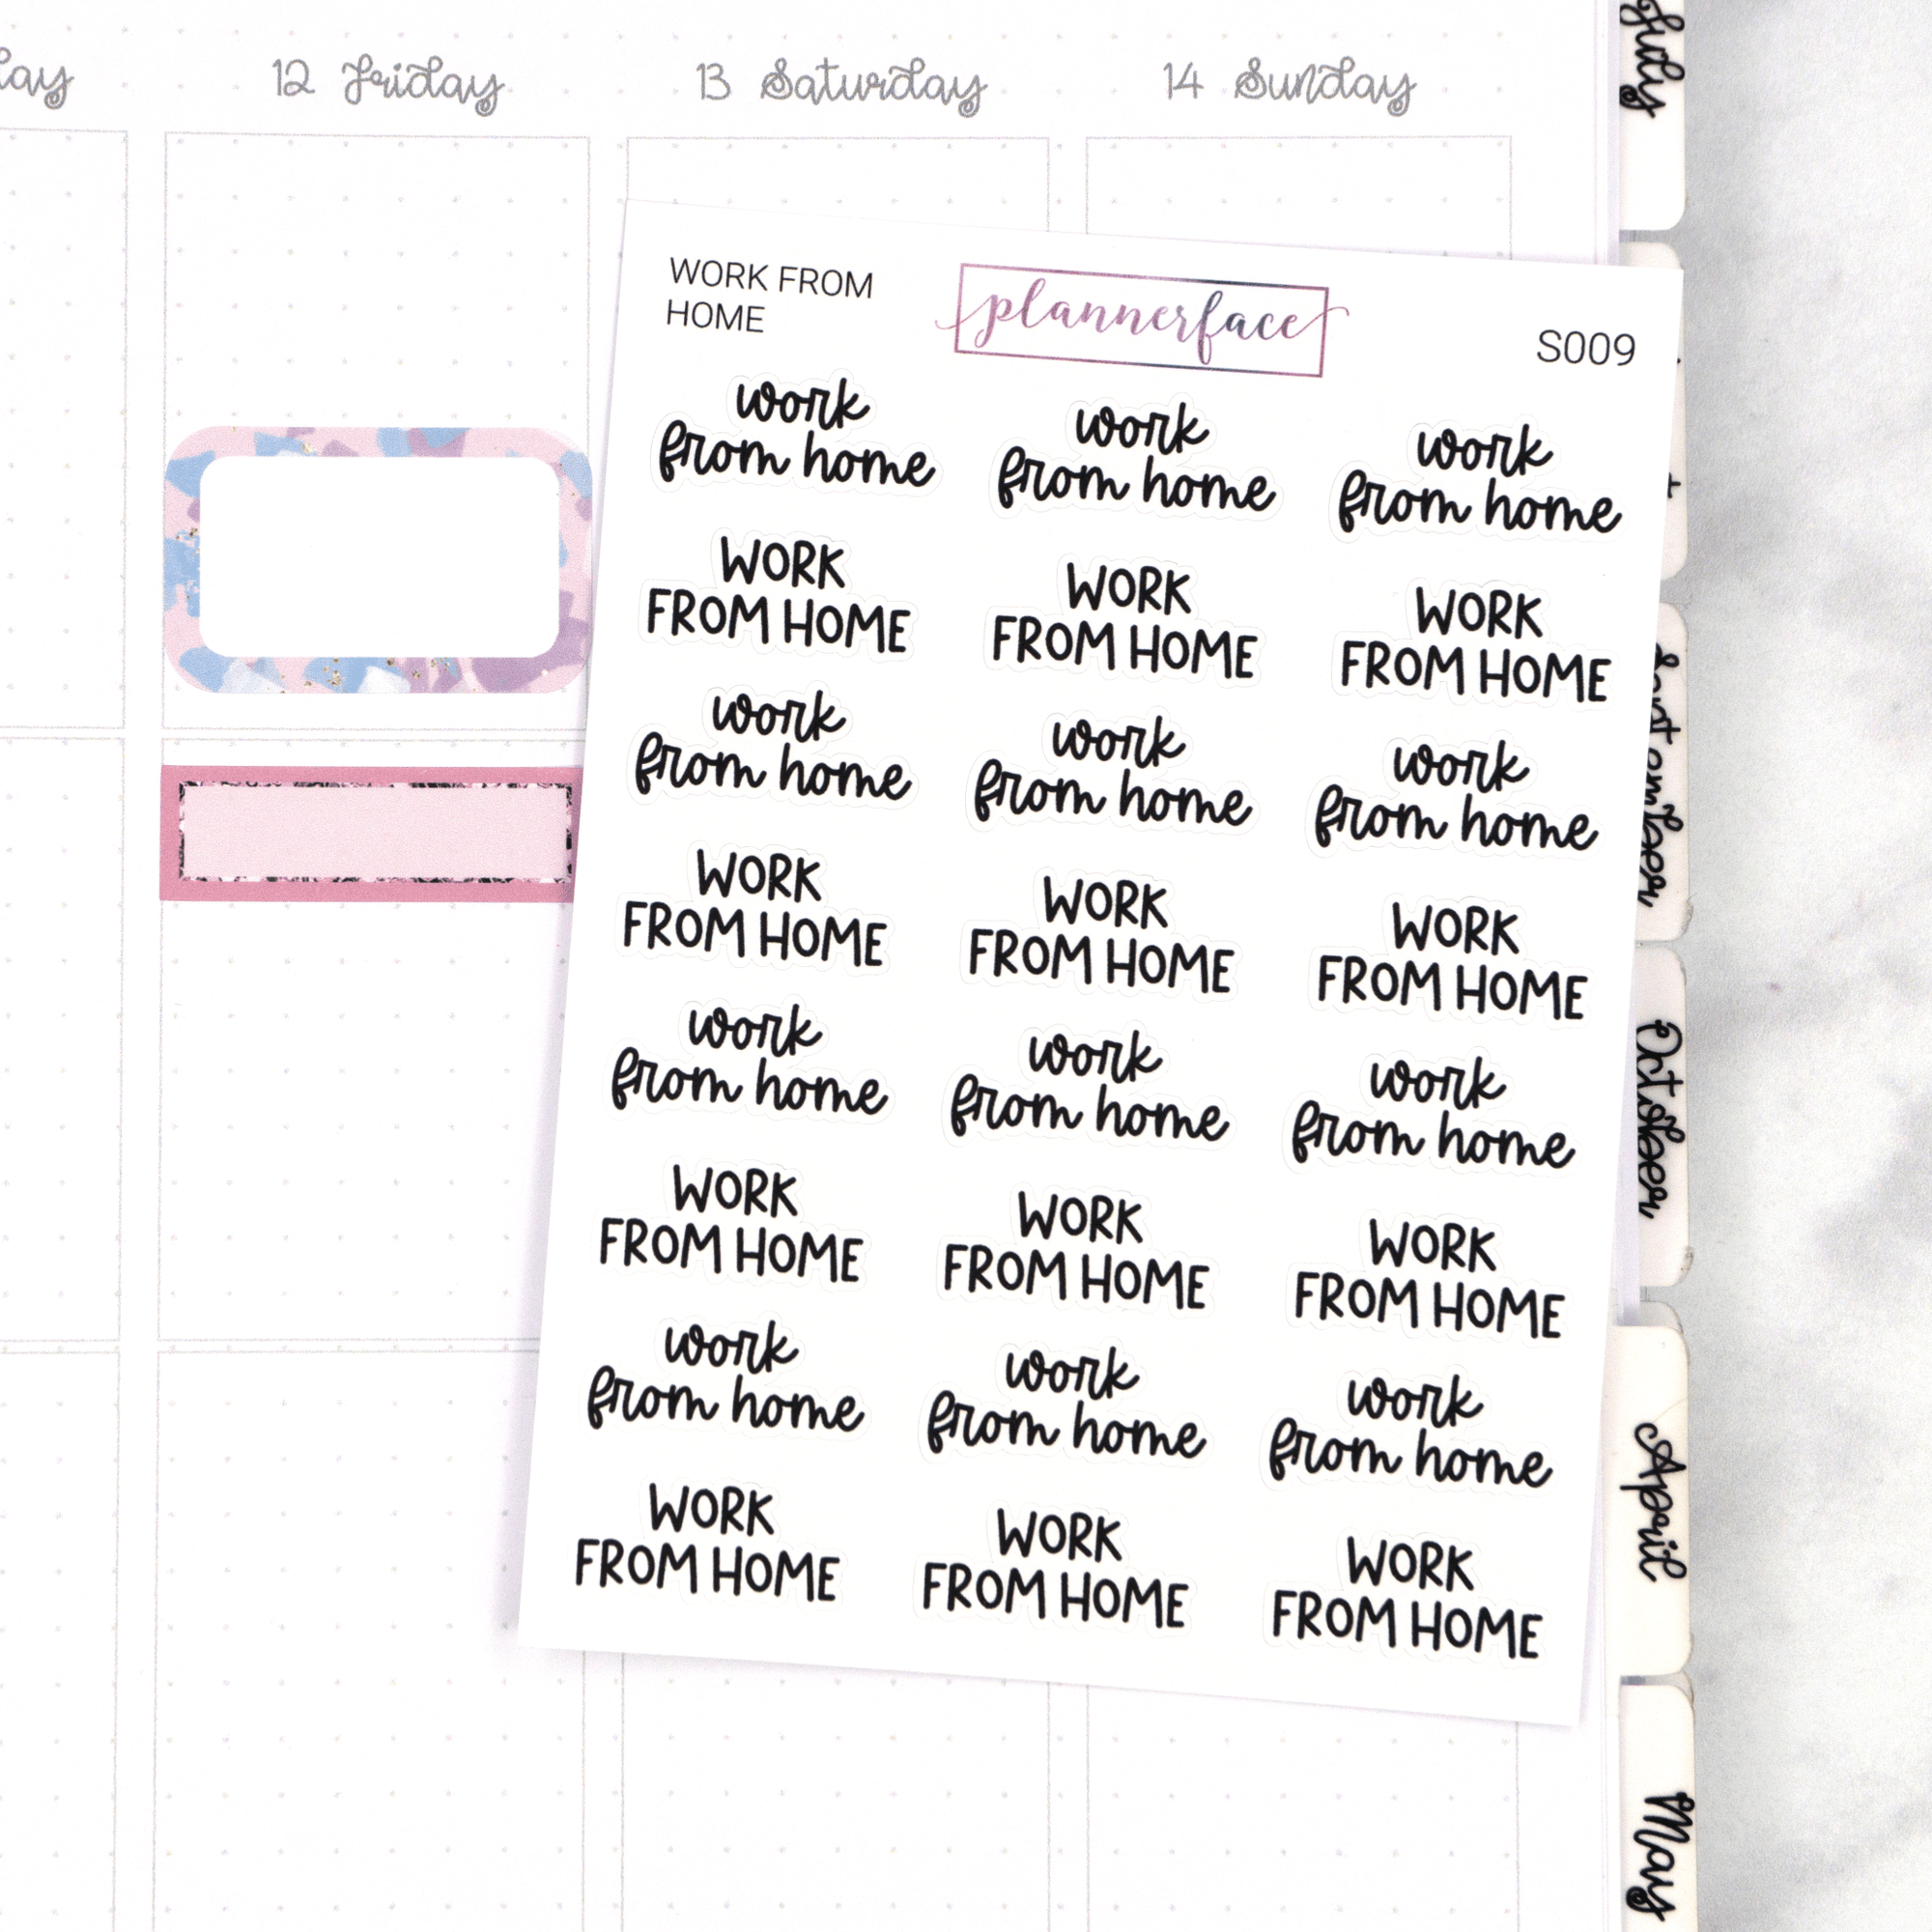 12 Friday 13 Saturday 14 Sunday
WORK FROM
HOME
plannerface
S009
work
from home
work
from home
work
from home
WORK
FROM HOME
WORK
FROM HOME
WORK
FROM HOME
work
from home
work
from home
work
from home
WORK
FROM HOME
WORK
FROM HOME
WORK
FROM HOME
work
from home
work
from home
work
from home
WORK
FROM HOME
WORK
FROM HOME
WORK
FROM HOME
work
from home
work
from home
work
from home
WORK
FROM HOME
WORK
FROM HOME
WORK
FROM HOME
July
September
October
April
May